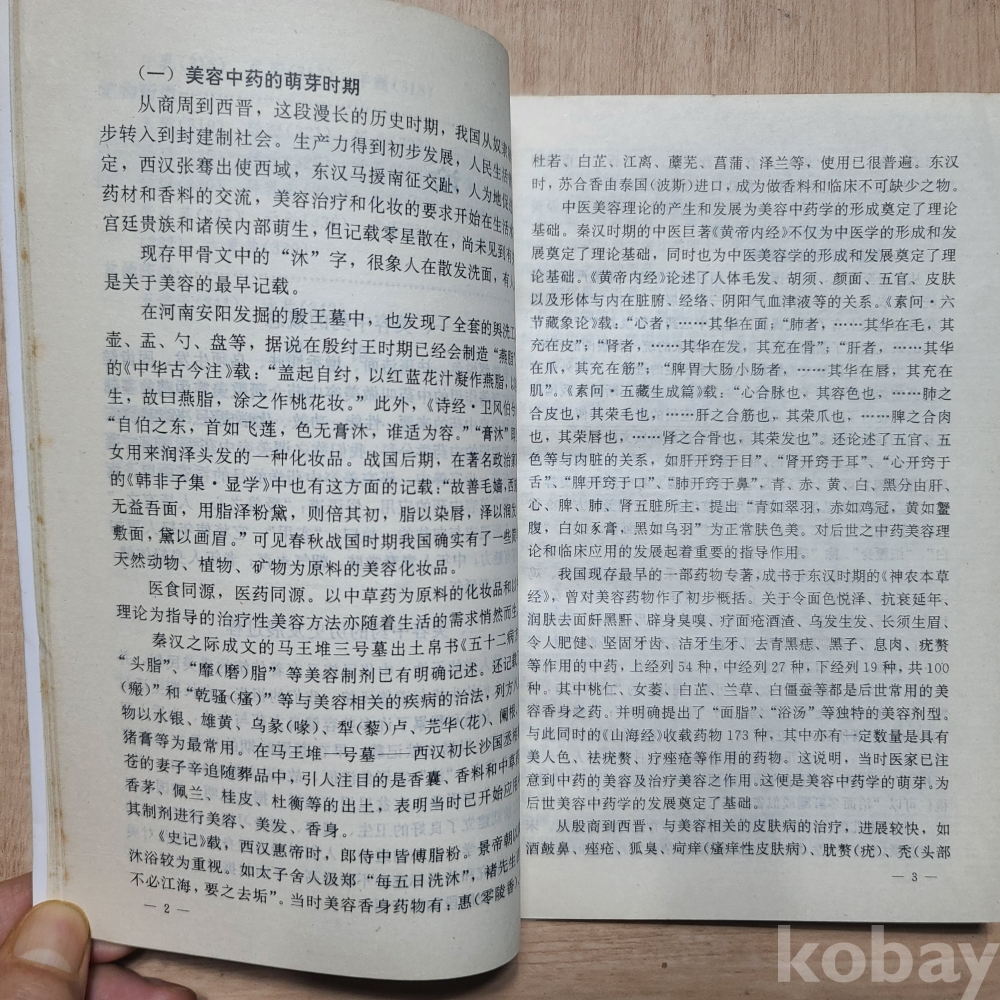 （一）美容中药的萌芽时期
从商周到西晋，这段漫长的历史时期，我国从奴隶
步转入到封建制社会。生产力得到初步发展，人民生活
定，西汉张骞出使西域，东汉马援南征交趾，人为地促
药材和香料的交流，美容治疗和化妆的要求开始在生活
宫廷贵族和诸侯内部萌生，但记载零星散在，尚未见到有
现存甲骨文中的“沐”字，很象人在散发洗面，有人
是关于美容的最早记载。
在河南安阳发掘的殷王墓中，也发现了全套的舆洗工
壶、盂、勺、盘等，据说在殷纣王时期已经会制造“燕脂
的《中华古今注》载：“盖起自纣，以红蓝花汁凝作燕脂，以
生，故曰燕脂，涂之作桃花妆。”此外，《诗经·卫风伯兮
“自伯之东，首如飞莲，色无膏沐，谁适为容。”“膏沐”即
女用来润泽头发的一种化妆品。战国后期，在著名政治家
的《韩非子集·显学》中也有这方面的记载：“故善毛嫱，西
无益吾面，用脂泽粉黛，则倍其初，脂以染唇，泽以润发
敷面，黛以画眉。”可见春秋战国时期我国确实有了一些简
天然动物、植物、矿物为原料的美容化妆品。
医食同源，医药同源。以中草药为原料的化妆品和以
理论为指导的治疗性美容方法亦随着生活的需求悄然而生
秦汉之际成文的马王堆三号墓出土帛书《五十二病方
“头脂”、“靡(磨)脂”等美容制剂已有明确记述。还记载
(瘢)”和“乾骚(瘙)”等与美容相关的疾病的治法，列方入
物以水银、雄黄、乌彖(喙)、犁(藜)卢、芫华(花)、阑根
猪膏等为最常用。在马王堆一号墓——西汉初长沙国丞相
苍的妻子辛追随葬品中，引人注目的是香囊、香料和中草药
香茅、佩兰、桂皮、杜衡等的出土，表明当时已开始应用
其制剂进行美容、美发、香身。
《史记》载，西汉惠帝时，郎侍中皆傅脂粉。景帝朝以
沐浴较为重视。如太子舍人汲郑“每五日洗沐”，褚先生
不必江海，要之去垢”。当时美容香身药物有：惠(零陵香)、
— 2 —
杜若、白芷、江离、蘼芜、菖蒲、泽兰等，使用已很普遍。东汉
时，苏合香由泰国(波斯)进口，成为做香料和临床不可缺少之物。
中医美容理论的产生和发展为美容中药学的形成奠定了理论
基础。秦汉时期的中医巨著《黄帝内经》不仅为中医学的形成和发
展奠定了理论基础，同时也为中医美容学的形成和发展奠定了理
论基础。《黄帝内经》论述了人体毛发、胡须、颜面、五官、皮肤
以及形体与内在脏腑、经络、阴阳气血津液等的关系。《素问·六
节藏象论》载：“心者，……其华在面；“肺者，……其华在毛，其
充在皮”；“肾者，……其华在发，其充在骨”；“肝者，……其华在
爪，其充在筋”；“脾胃大肠小肠者，……其华在唇，其充在
肌”。《素问·五藏生成篇》载：“心合脉也，其容色也，……肺之
合皮也，其荣毛也，……肝之合筋也，其荣爪也，……脾之合肉
也，其荣唇也，……肾之合骨也，其荣发也”。还论述了五官、五
色等与内脏的关系，如肝开窍于目”、“肾开窍于耳”、“心开窍于
舌”、“脾开窍于口”、“肺开窍于鼻”，青、赤、黄、白、黑分由肝、
心、脾、肺、肾五脏所主，提出“青如翠羽，赤如鸡冠，黄如蟹
腹，白如豕膏，黑如乌羽”为正常肤色美。对后世之中药美容理
论和临床应用的发展起着重要的指导作用。
我国现存最早的一部药物专著，成书于东汉时期的《神农本草
经》，曾对美容药物作了初步概括。关于令面色悦泽、抗衰延年、
润肤去面皯黑䵳、辟身臭嗅、疗面疮酒渣、乌发生发、长须生眉、
令人肥健、坚固牙齿、洁牙生牙、去青黑痣、黑子、息肉、疣赘
等作用的中药，上经列 54 种，中经列 27 种，下经列 19 种，共 100
种。其中桃仁、女萎、白芷、兰草、白僵蚕等都是后世常用的美
容香身之药。并明确提出了“面脂”、“浴汤”等独特的美容剂型。
与此同时的《山海经》收载药物 173 种，其中亦有一定数量是具有
美人色、祛疣赘、疗痤疮等作用的药物。这说明，当时医家已注
意到中药的美容及治疗美容之作用。这便是美容中药学的萌芽。为
后世美容中药学的发展奠定了基础。
从殷商到西晋，与美容相关的皮肤病的治疗，进展较快，如
酒皶鼻、痤疮、狐臭、疴痒(瘙痒性皮肤病)、肬赘(疣)、秃(头部
— 3 —
kobay